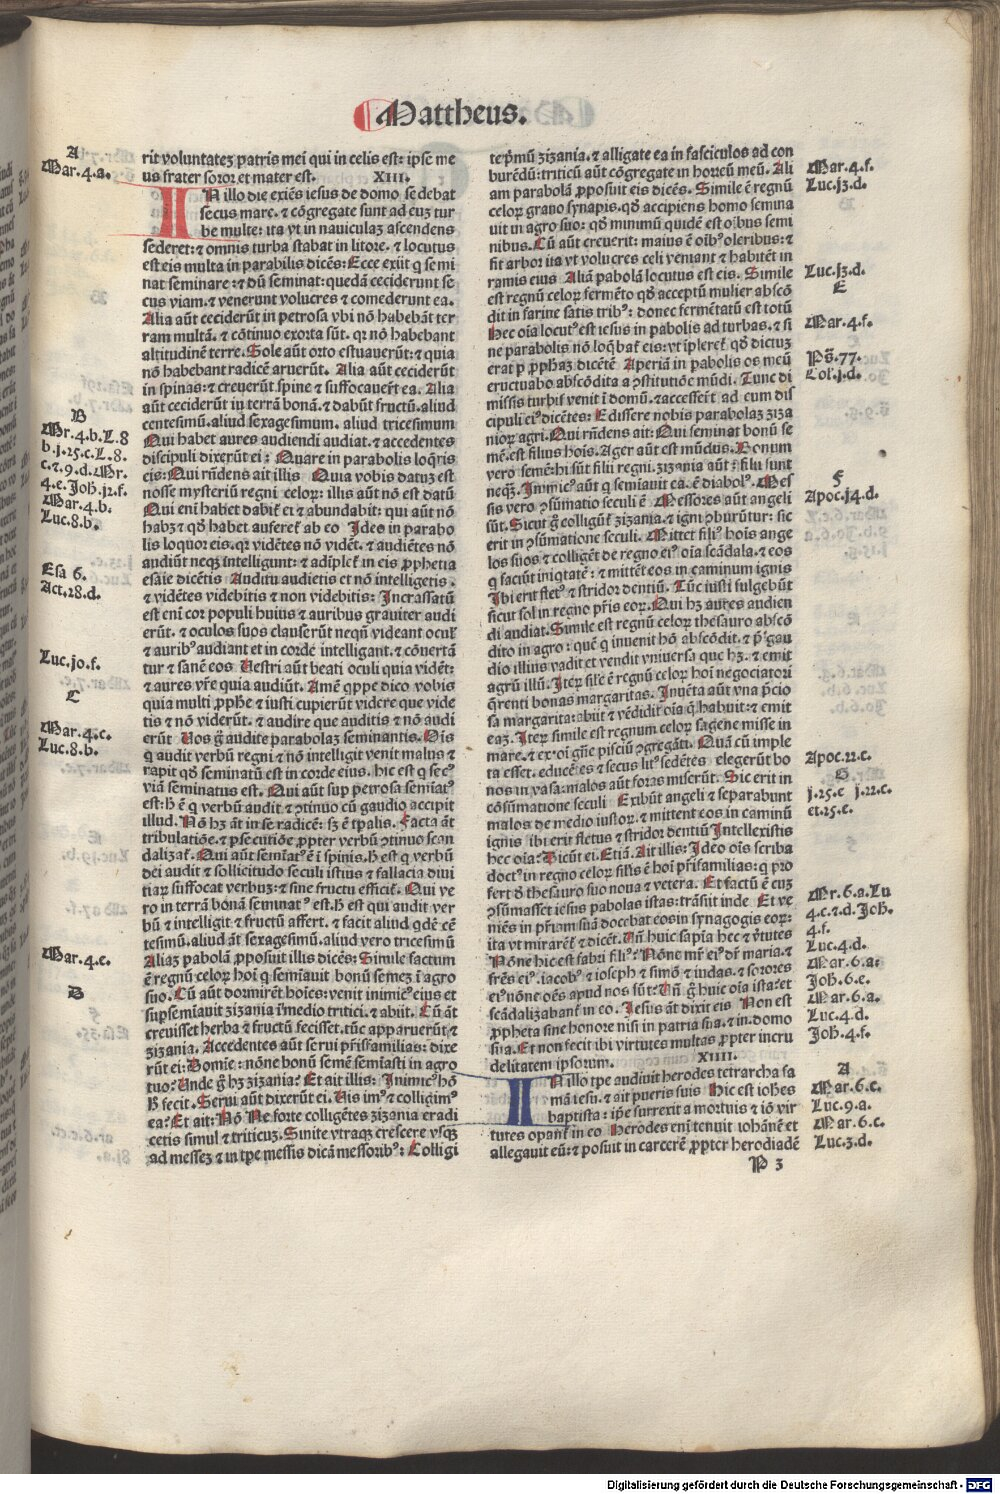 Mattheus.
A
Mar.4.a.
rit voluntatez patris mei qui in celis est: ipse me
us frater soror et mater est. XIII.
IN illo die exiēs iesus de domo sedebat
secus mare. ⁊ cōgregate sunt ad eum tur
be multe: ita vt in nauiculaz ascendens
sederet: ⁊ omnis turba stabat in litore. ⁊ locutus
est eis multa in parabilis dicēs: Ecce exiit q semi
nat seminare: ⁊ dū seminat: quedā ceciderunt se
cus viam. ⁊ venerunt volucres ⁊ comederunt ea.
Alia aūt ceciderūt in petrosa vbi nō habebāt ter
ram multā. ⁊ cōtinuo exorta sūt. qr nō habebant
altitudinē terre. Sole aūt orto estuauerūt: ⁊ quia
nō habebant radicē aruerūt. Alia aūt ceciderūt
in spinas: ⁊ creuerūt spine ⁊ suffocauerūt ea. Alia
aūt ceciderūt in terrā bonā. ⁊ dabūt fructū. aliud
centesimū. aliud sexagesimum. aliud tricesimum
Qui habet aures audiendi audiat. ⁊ accedentes
discipuli dixerūt ei: Quare in parabolis loqris
eis: Qui rñdens ait illis Quia vobis datuz est
nosse mysteriū regni celoꝝ: illis aūt nō est datū
Qui eni habet dabit̃ ei ⁊ abundabit: qui aūt nō
habz ⁊ qd̕ habet auferet̃ ab eo Ideo in parabo
lis loquor eis. qr vidētes nō vidēt. ⁊ audiētes nō
audiūt neqz intelligunt: ⁊ adīplet̃ in eis ꝓphetia
esaie dicētis Auditu audietis et nō intelligetis.
⁊ vidētes videbitis ⁊ non videbitis: Incrassatū
est eni cor populi huius ⁊ auribus grauiter audi
erūt. ⁊ oculos suos clauserūt nequā videant ocul̕
⁊ aurib⁹ audiant et in corde intelligant. ⁊ cōuertā
tur ⁊ sanē eos Vestri aūt beati oculi quia vidēt:
⁊ aures vr̃e quia audiūt. Amē qppe dico vobis
quia multi ꝓphe ⁊ iusti cupierūt videre que vide
tis ⁊ nō viderūt. ⁊ audire que auditis ⁊ nō audi
erūt Vos g̃ audite parabolaz seminantis. Ois
q audit verbū regni ⁊ nō intelligit venit malus ⁊
rapit qd̕ seminatū est in corde eius. hic est q sec⁹
viā seminatus est. Qui aūt sup petrosa semīat⁹
est: h̕ ē q verbū audit ⁊ ꝯtinuo cū gaudio accipit
illud. Nō hz āt in se radicē: sz ē tp̃alis. Facta āt
tribulatiōe. ⁊ ꝑsecutiōe ꝓpter verbū ꝯtinuo scan
dalizat̃. Qui aūt semīat⁹ ē ī spinis. h̕ est q verbū
dei audit ⁊ sollicitudo seculi istius ⁊ fallacia diui
tiaꝝ suffocat verbuz: ⁊ sine fructu efficit̃. Qui ve
ro in terrā bonā seminat⁹ est. h̕ est qui audit ver
bū ⁊ intelligit ⁊ fructū affert. ⁊ facit aliud qdē cē
tesimū. aliud āt sexagesimū. aliud vero tricesimū
Aliaz pabolā ꝓposuit illis dicēs: Simile factum
ē regnū celoꝝ hoi q semīauit bonū semez ī agro
suo. Cū aūt dormirēt hoīes: venit inimic⁹ eius et
supsemīauit zizania ī medio tritici. ⁊ abiit. Cū āt
creuisset herba ⁊ fructū fecisset. tūc apparuerūt ⁊
zizania. Accedentes aūt serui pr̃isfamilias: dixe
rūt ei: Domīe: nōne bonū semē semīasti in agro
tuo: Unde g̃ hz zizania: Et ait illis: Inimic⁹ hō
h̕ fecit. Serui aūt dixerūt ei. Uis im⁹ ⁊ colligim⁹
ea: Et ait: Nō Ne forte colligētes zizania eradi
cetis simul ⁊ triticuz. Sinite vtraqz crescere vsqz
ad messez ⁊ in tpe messis dicā messorib⁹: Colligi
B
Mr.4.b.L.8
b.j.25.c.L.8.
c.⁊.9.d.Mr.
4.e.Joh.12.f.
Mar.4.b.
Luc.8.b.
Esa 6.
Act.28.d.
Luc.jo.f.
C
Mar.4.c.
Luc.8.b.
Mar.4.e.
D
te pmū zizania. ⁊ alligate ea in fasciculos ad con
burēdū: triticū aūt cōgregate in horreū meū. Ali
am parabolā ꝓposuit eis dicēs. Simile ē regnū
celoꝝ grano synapis. qd̕ accipiens homo semina
uit in agro suo: qd̕ minimū quidē est oībus semi
nibus. Cū aūt creuerit: maius ē oīb⁹ oleribus: ⁊
fit arbor ita vt volucres celi veniant ⁊ habitēt in
ramis eius Aliā pabolā locutus est eis. Simile
est regnū celoꝝ fermēto qd̕ acceptū mulier abscō
dit in farine satis trib⁹: donec fermētatū est totū
Hec oīa locut⁹ est iesus in pabolis ad turbas. ⁊ si
ne parabolis nō loqbat̃ eis: vt īpleret̃ qd̕ dictuz
erat p ꝓphaz dicētē. Aperiā in pabolis os meū
eructuabo abscōdita a ꝯstitutiōe mūdi. Tunc di
missis turbis venit ī domū. ⁊ accesserūt ad eum dis
cipuli ei⁹ dicētes: Edissere nobis parabolaz ziza
nioꝝ agri. Qui rñdens ait: Qui seminat bonū se
mē. est filius hoīs. Ager aūt est mūdus. Bonum
vero semē: hi sūt filii regni. zizania aūt: filii sunt
neqz. Inimic⁹ aūt q semiauit ea. ē diabol⁹. Mes
sis vero ꝯsūmatio seculi ē Messores aūt angeli
sūt. Sicut g̃ colligūt̃ zizania. ⁊ igni ꝯburūtur: sic
erit in ꝯsūmatione seculi. Mittet fili⁹ hoīs ange
los suos ⁊ colligēt de regno ei⁹ oīa scādala. ⁊ eos
q faciūt iniqtatē: ⁊ mittēt eos in caminum ignis
Ibi erit flet⁹ ⁊ stridor dentiū. Tūc iusti fulgebūt
sicut sol in regno pr̃is eoꝝ. Qui hz aures audien
di audiat. Simile est regnū celoꝝ thesauro abscō
dito in agro: quē q inuenit hō abscōdit. ⁊ p̄ gau
dio illius vadit et vendit vniuersa que hz. ⁊ emit
agrū illū. Iteꝝ sile ē regnū celoꝝ hoi negociatori
q̄renti bonas margaritas. Inuēta aūt vna p̄cio
sa margarita: abiit ⁊ vēdidit oīa q̄ habuit: ⁊ emit
eaz. Iteꝝ simile est regnum celoꝝ sagene misse in
mare. ⁊ ex oī gn̄e pisciū ꝯgregāti. Quā cū imple
ta esset. educētes ⁊ secus lit⁹ sedētes elegerūt bo
nos in vasa: malos aūt foras miserūt. Sic erit in
cōsūmatione seculi Exibūt angeli ⁊ separabunt
malos de medio iustoꝝ. ⁊ mittent eos in caminū
ignis ibi erit fletus ⁊ stridor dentiū Intellexistis
hec oīa: Dicūt ei. Etiā. Ait illis: Ideo oīs scriba
doct⁹ in regno celoꝝ silis ē hoi pr̃isfamilias: q pro
fert d̕ thesauro suo noua ⁊ vetera. Et factū ē cuz
ꝯsūmasset iesus pabolas istas: trāsiit inde Et ve
niēs in pr̃iam suā docebat eos in synagogis eoꝝ:
ita vt mirarēt̃ ⁊ dicēt. Uñ huic sapīa hec ⁊ v̕tutes
Nōne hic est fabri fili⁹: Nōne mr̃ ei⁹ dr̃ maria. ⁊
fr̃es ei⁹. iacob⁹ ⁊ ioseph ⁊ simō ⁊ iudas. ⁊ sorores
ei⁹ nōne oēs apud nos sūt: Uñ g̃ huic oīa ista: et
scādalizabant̃ in eo. Iesus āt dixit eis Non est
ꝓpheta sine honore nisi in patria sua. ⁊ in. domo
sua. Et non fecit ibi virtutes multas ꝓpter incru
delitatem ipsorum. XIIII.
IN illo tpe audiuit herodes tetrarcha fa
mā iesu. ⁊ ait pueris suis Hic est iohēs
baptista: ipe surrexit a mortuis ⁊ iō vir
tutes opant̃ in eo Herodes eni tenuit iohānē et
allegauit eū: ⁊ posuit in carcerē ꝓpter herodiadē
P 3
Mar.4.f.
Luc.j3.d.
Luc.j3.d.
E
Mar.4.f.
Ps.77.
Col.j.d.
F
Apoc.j4.d.
Apoc.22.c.
G
j.25.c j.22.c.
et.25.e.
Mr.6.a.Lu
4.c.⁊.d.Joh.
4.f.
Luc.4.d.
Mar.6.a:
Joh.6.e.
Mar.6.a.
Luc.4.d.
Joh.4.f.
A
Mar.6.c.
Luc.9.a.
Mar.6.c.
Luc.3.d.
Digitalisierung gefördert durch die Deutsche Forschungsgemeinschaft - DFG